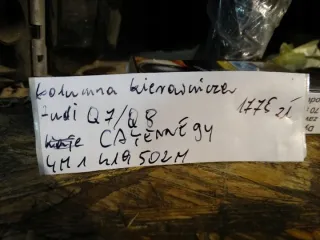 kolumna kierownicza
Audi Q7/Q8 177E zł
CAYENNE 9Y
4M1 419 502M